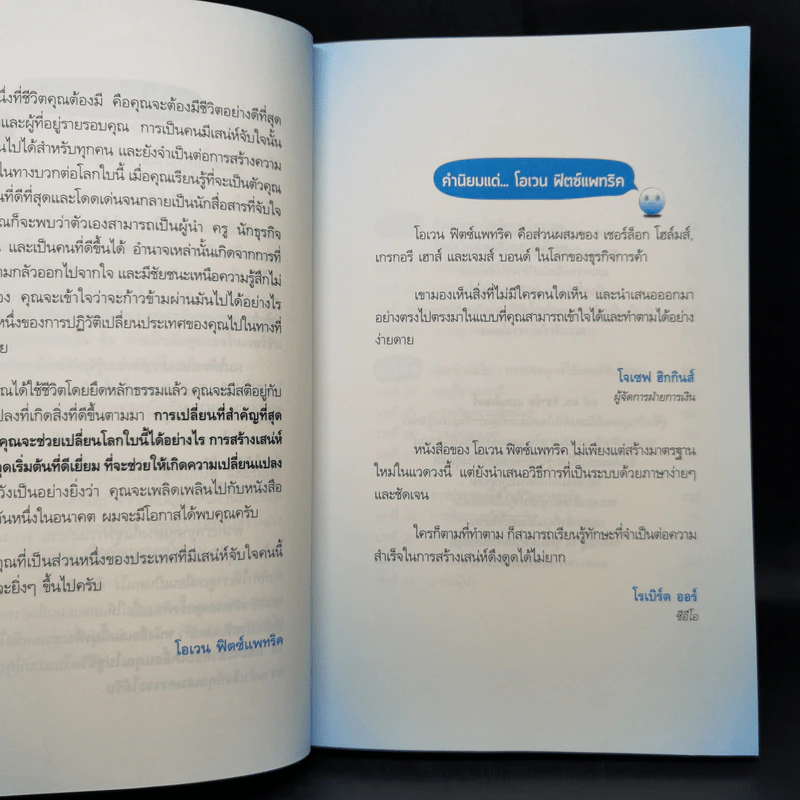 นึ่งที่ชีวิตคุณต้องมี คือคุณจะต้องมีชีวิตอย่างดีที่สุด
และผู้ที่อยู่รายรอบคุณ การเป็นคนมีเสน่ห์จับใจนั้น
นไปได้สำหรับทุกคน และยังจำเป็นต่อการสร้างความ
ในทางบวกต่อโลกใบนี้ เมื่อคุณเรียนรู้ที่จะเป็นตัวคุณ
นที่ดีที่สุดและโดดเด่นจนกลายเป็นนักสื่อสารที่จับใจ
ณก็จะพบว่าตัวเองสามารถเป็นผู้นำ ครู นักธุรกิจ
และเป็นคนที่ดีขึ้นได้ อำนาจเหล่านั้นเกิดจากการที่
ามกลัวออกไปจากใจ และมีชัยชนะเหนือความรู้สึกไม่
อง คุณจะเข้าใจว่าจะก้าวข้ามผ่านมันไปได้อย่างไร
หนึ่งของการปฏิวัติเปลี่ยนประเทศของคุณไปในทางที่
ย
ณได้ใช้ชีวิตโดยยึดหลักธรรมแล้ว คุณจะมีสติอยู่กับ
ปลงที่เกิดสิ่งที่ดีขึ้นตามมา การเปลี่ยนที่สำคัญที่สุด
คุณจะช่วยเปลี่ยนโลกใบนี้ได้อย่างไร การสร้างเสน่ห์
จุดเริ่มต้นที่ดีเยี่ยม ที่จะช่วยให้เกิดความเปลี่ยนแปลง
วังเป็นอย่างยิ่งว่า คุณจะเพลิดเพลินไปกับหนังสือ
วันหนึ่งในอนาคต ผมจะมีโอกาสได้พบคุณครับ
คุณที่เป็นส่วนหนึ่งของประเทศที่มีเสน่ห์จับใจคนนี้
วะยิ่งๆ ขึ้นไปครับ
โอเวน ฟิตซ์แพทริค
คำนิยมแด่... โอเวน ฟิตซ์แพทริค
โอเวน ฟิตซ์แพทริค คือส่วนผสมของ เชอร์ล็อก โฮล์มส์,
เกรกอรี เฮาส์ และเจมส์ บอนด์ ในโลกของธุรกิจการค้า
เขามองเห็นสิ่งที่ไม่มีใครคนใดเห็น และนำเสนอออกมา
อย่างตรงไปตรงมาในแบบที่คุณสามารถเข้าใจได้และทำตามได้อย่าง
ง่ายดาย
โจเซฟ ฮิกกินส์
ผู้จัดการฝ่ายการเงิน
หนังสือของ โอเวน ฟิตซ์แพทริค ไม่เพียงแต่สร้างมาตรฐาน
ใหม่ในแวดวงนี้ แต่ยังนำเสนอวิธีการที่เป็นระบบด้วยภาษาง่ายๆ
และชัดเจน
ใครก็ตามที่ทำตาม ก็สามารถเรียนรู้ทักษะที่จำเป็นต่อความ
สำเร็จในการสร้างเสน่ห์ดึงดูดได้ไม่ยาก
โรเบิร์ต ออร์
ซีอีโอ